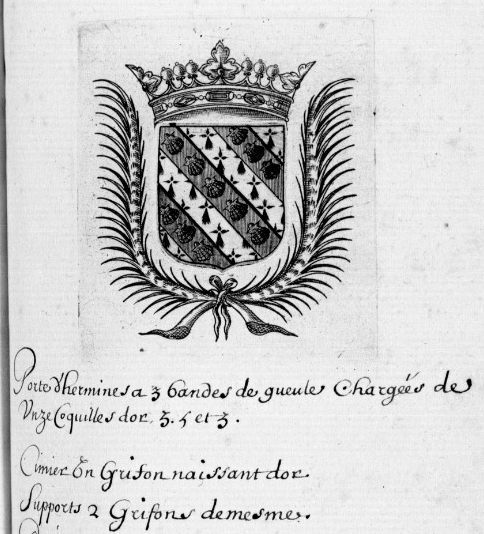 Porte d'hermines a 3 bandes de gueule Chargéés de
Vnze Coquilles dor. 3. 5 et 3.
Cimier Vn Grifon naissant dor
Supports 2 Grifons demesme.